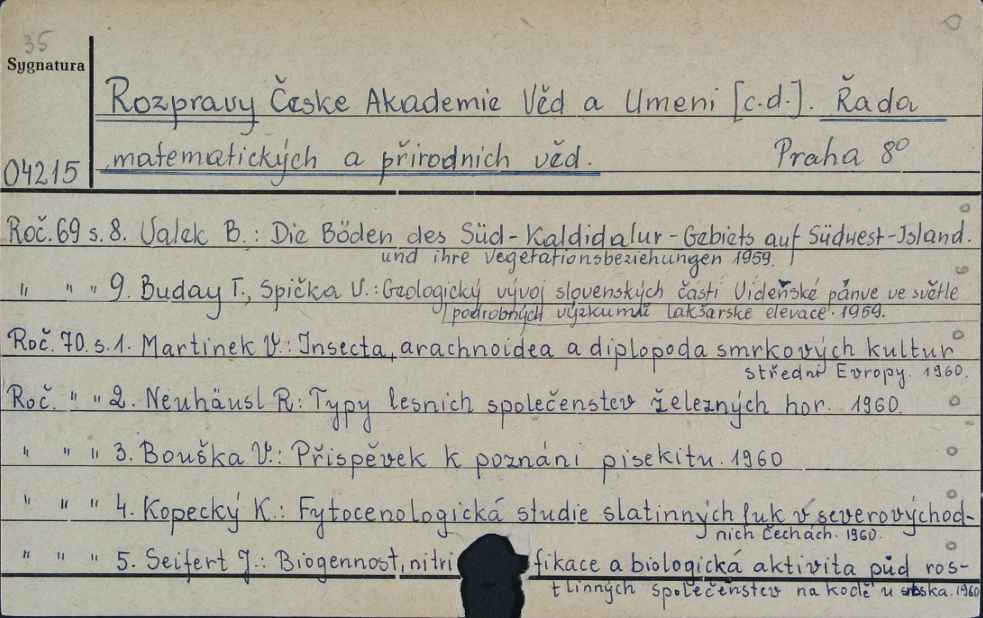 35
Sygnatura
Rozpravy České Akademie Věd a Umeni [c.d.]. Řada
04215 matematických a přirodnich věd. Praha 8º
Roč. 69 s. 8. Valek B.: Die Böden des Süd-Kaldidalur-Gebiets auf Südwest-Island.
und ihre Vegetationsbeziehungen 1959.
" " " 9. Buday T., Spička V.: Geologický vývoj slovenských části Videňské pánve ve světle
podrobných výzkumů lakšarské elevace. 1959.
Roč. 70. s. 1. Martinek V.: Insecta, arachnoidea a diplopoda smrkových kultur
středni Evropy. 1960.
Roč. " " 2. Neuhäusl R: Typy lesnich společenstev Železných hor. 1960.
" " " 3. Bouška V.: Přispěvek k poznáni pisekitu. 1960
" " " 4. Kopecký K.: Fytocenologická studie slatinných luk v severovýchod-
nich Čechách. 1960.
" " " 5. Seifert J.: Biogennost, nitri fikace a biologická aktivita půd ros-
tlinných společenstev na kodě u srbska. 1960